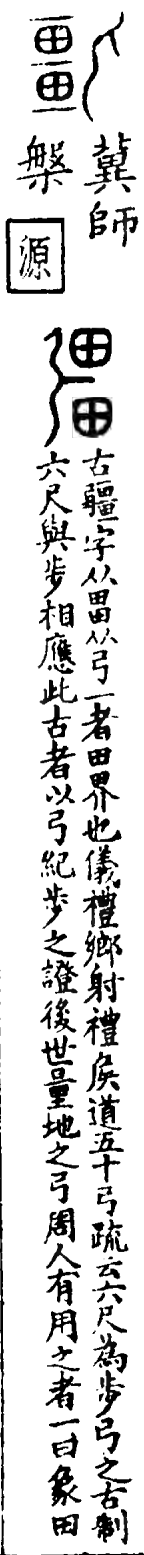 冀師
槃
源
古疆字从畕从弓一者田界也儀禮鄉射禮侯道五十弓疏云六尺為步弓之古制
六尺與步相應此古者以弓紀步之證後世量地之弓周人有用之者一曰象田